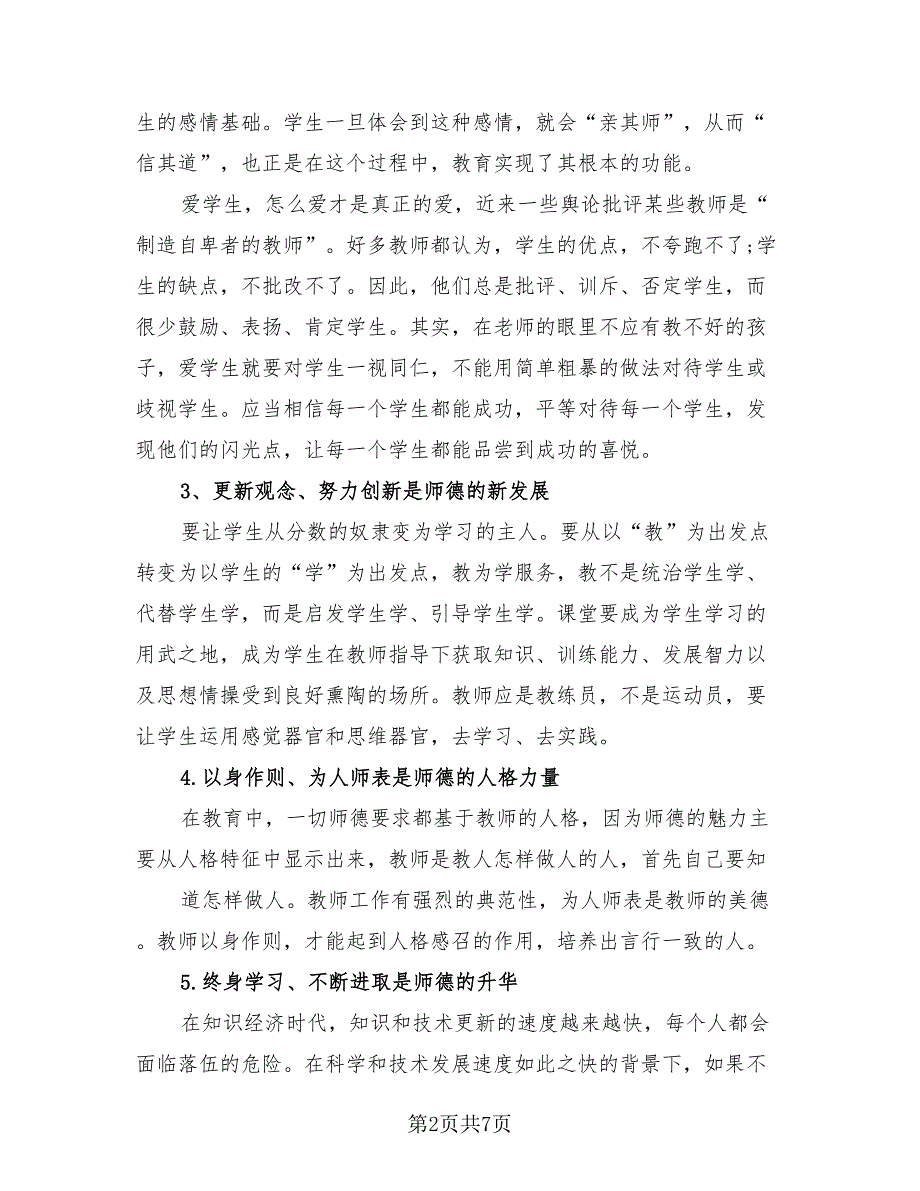 生的感情基础。学生一旦体会到这种感情，就会“亲其师”，从而“
信其道”，也正是在这个过程中，教育实现了其根本的功能。
爱学生，怎么爱才是真正的爱，近来一些舆论批评某些教师是“
制造自卑者的教师”。好多教师都认为，学生的优点，不夸跑不了;学
生的缺点，不批改不了。因此，他们总是批评、训斥、否定学生，而
很少鼓励、表扬、肯定学生。其实，在老师的眼里不应有教不好的孩
子，爱学生就要对学生一视同仁，不能用简单粗暴的做法对待学生或
歧视学生。应当相信每一个学生都能成功，平等对待每一个学生，发
现他们的闪光点，让每一个学生都能品尝到成功的喜悦。
3、更新观念、努力创新是师德的新发展
要让学生从分数的奴隶变为学习的主人。要从以“教”为出发点
转变为以学生的“学”为出发点，教为学服务，教不是统治学生学、
代替学生学，而是启发学生学、引导学生学。课堂要成为学生学习的
用武之地，成为学生在教师指导下获取知识、训练能力、发展智力以
及思想情操受到良好熏陶的场所。教师应是教练员，不是运动员，要
让学生运用感觉器官和思维器官，去学习、去实践。
4.以身作则、为人师表是师德的人格力量
在教育中，一切师德要求都基于教师的人格，因为师德的魅力主
要从人格特征中显示出来，教师是教人怎样做人的人，首先自己要知
道怎样做人。教师工作有强烈的典范性，为人师表是教师的美德
。教师以身作则，才能起到人格感召的作用，培养出言行一致的人。
5.终身学习、不断进取是师德的升华
在知识经济时代，知识和技术更新的速度越来越快，每个人都会
面临落伍的危险。在科学和技术发展速度如此之快的背景下，如果不
第2页共7页